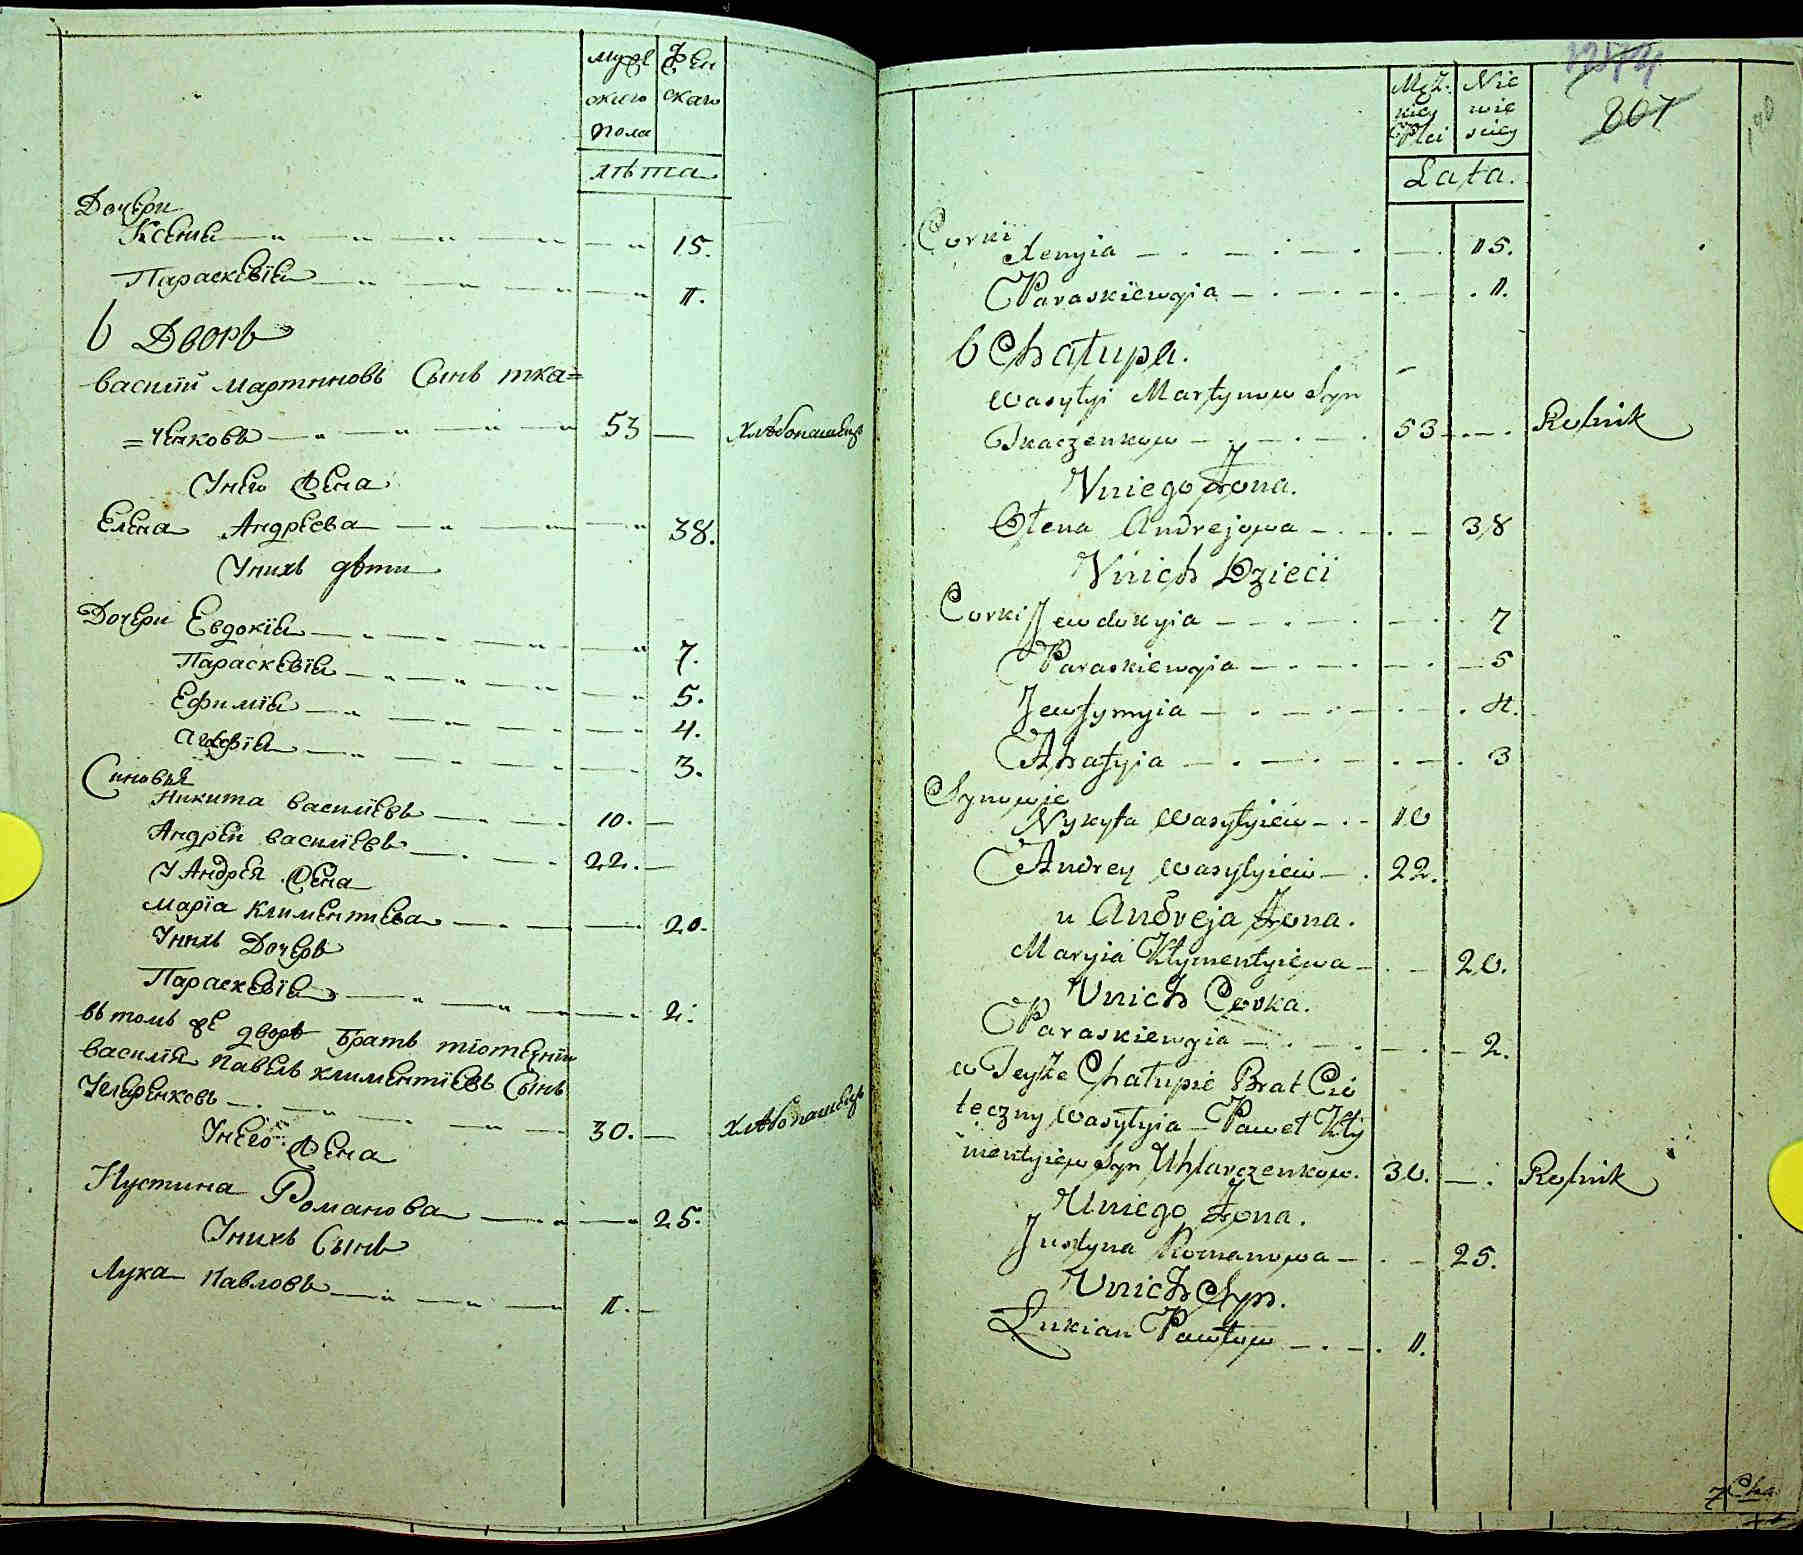 муже Жен
ского скаго
пола
лѣта
Дочери
Ксения 15.
Параскевїя 11.
6 Дворъ
василїй мартиновъ Сынъ тка=
=ченковъ 53 хлѣбопашецъ
Унего Жена
Елена Андреева 38.
Унихъ дѣти
Дочери Евдокїя 7.
Параскевїя 5.
Ефимїя 4.
Агафїя 3.
Синовья
Никита василїевъ 10.
Андрей василїевъ 22.
У Андрея Жена
марїа климентиева 20.
Унихъ Дочерь
Параскевїя 2.
въ томъ же дворѣ братъ
василїя павелъ климентїевъ Сынъ
30. хлѣбопашецъ
Унего Жена
Иустина Романова 25.
Унихъ Сынъ
Лука Павловъ 11.
Męz. Nie
kiey wie
Płci sciey
Lata.
801
Corki
Xenyia 15.
Paraskiewyia 11.
6 Chałupa.
Wasylyi Martynow Syn
Tkaczenkow 53 Rolnik
Uniego Żona.
Ołena Andrejowa 38
Unich Dzieci
Corki Jewdokyia 7
Paraskiewyia 5
Jewfymyia 4.
Ahafyia 3
Synowie
Nykyta Wasylyiew 10
Andrey Wasylyiew 22.
u Andreja Żona.
Maryia Kłymentyiewa 20.
Unich Corka.
Paraskiewyia 2.
w Teyże Chałupie Brat Cio
teczny Wasylyia Paweł Kły
mentyiew Syn Uhlarczenkow. 30. Rolnik
Uniego Żona.
Justyna Romanowa 25.
Unich Syn.
Łukian Pawłow 11.